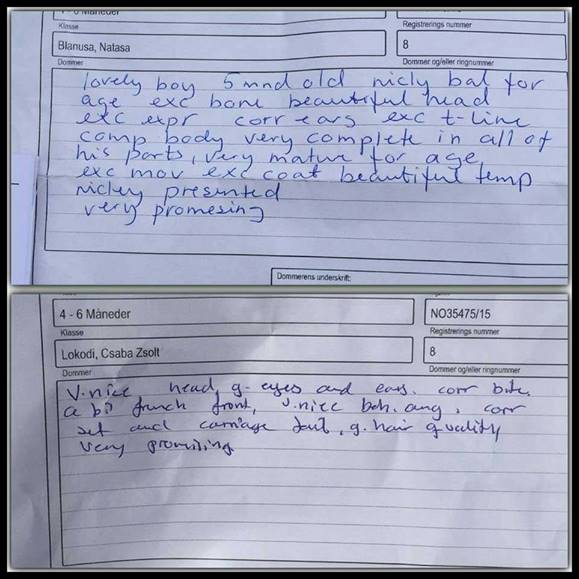 4 - 6 Måneder
Klasse
Registrerings nummer
Blanusa, Natasa
8
Dommer
Dommer og/eller ringnummer
lovely boy 5 mnd old nicly bal for
age exc bone beautiful head
exc expr corr ears exc t-line
comp body very complete in all of
his parts, very mature for age
exc mov exc coat beautiful temp
nickly presented
very promesing
Dommerens underskrift:
4 - 6 Måneder
NO35475/15
Klasse
Registrerings nummer
Lokodi, Csaba Zsolt
8
Dommer
Dommer og/eller ringnummer
V. nice head, g. eyes and ears. corr bite.
a bit french front, v. nice beh. ang. corr
set and carriage tail, g. hair quality
very promising.